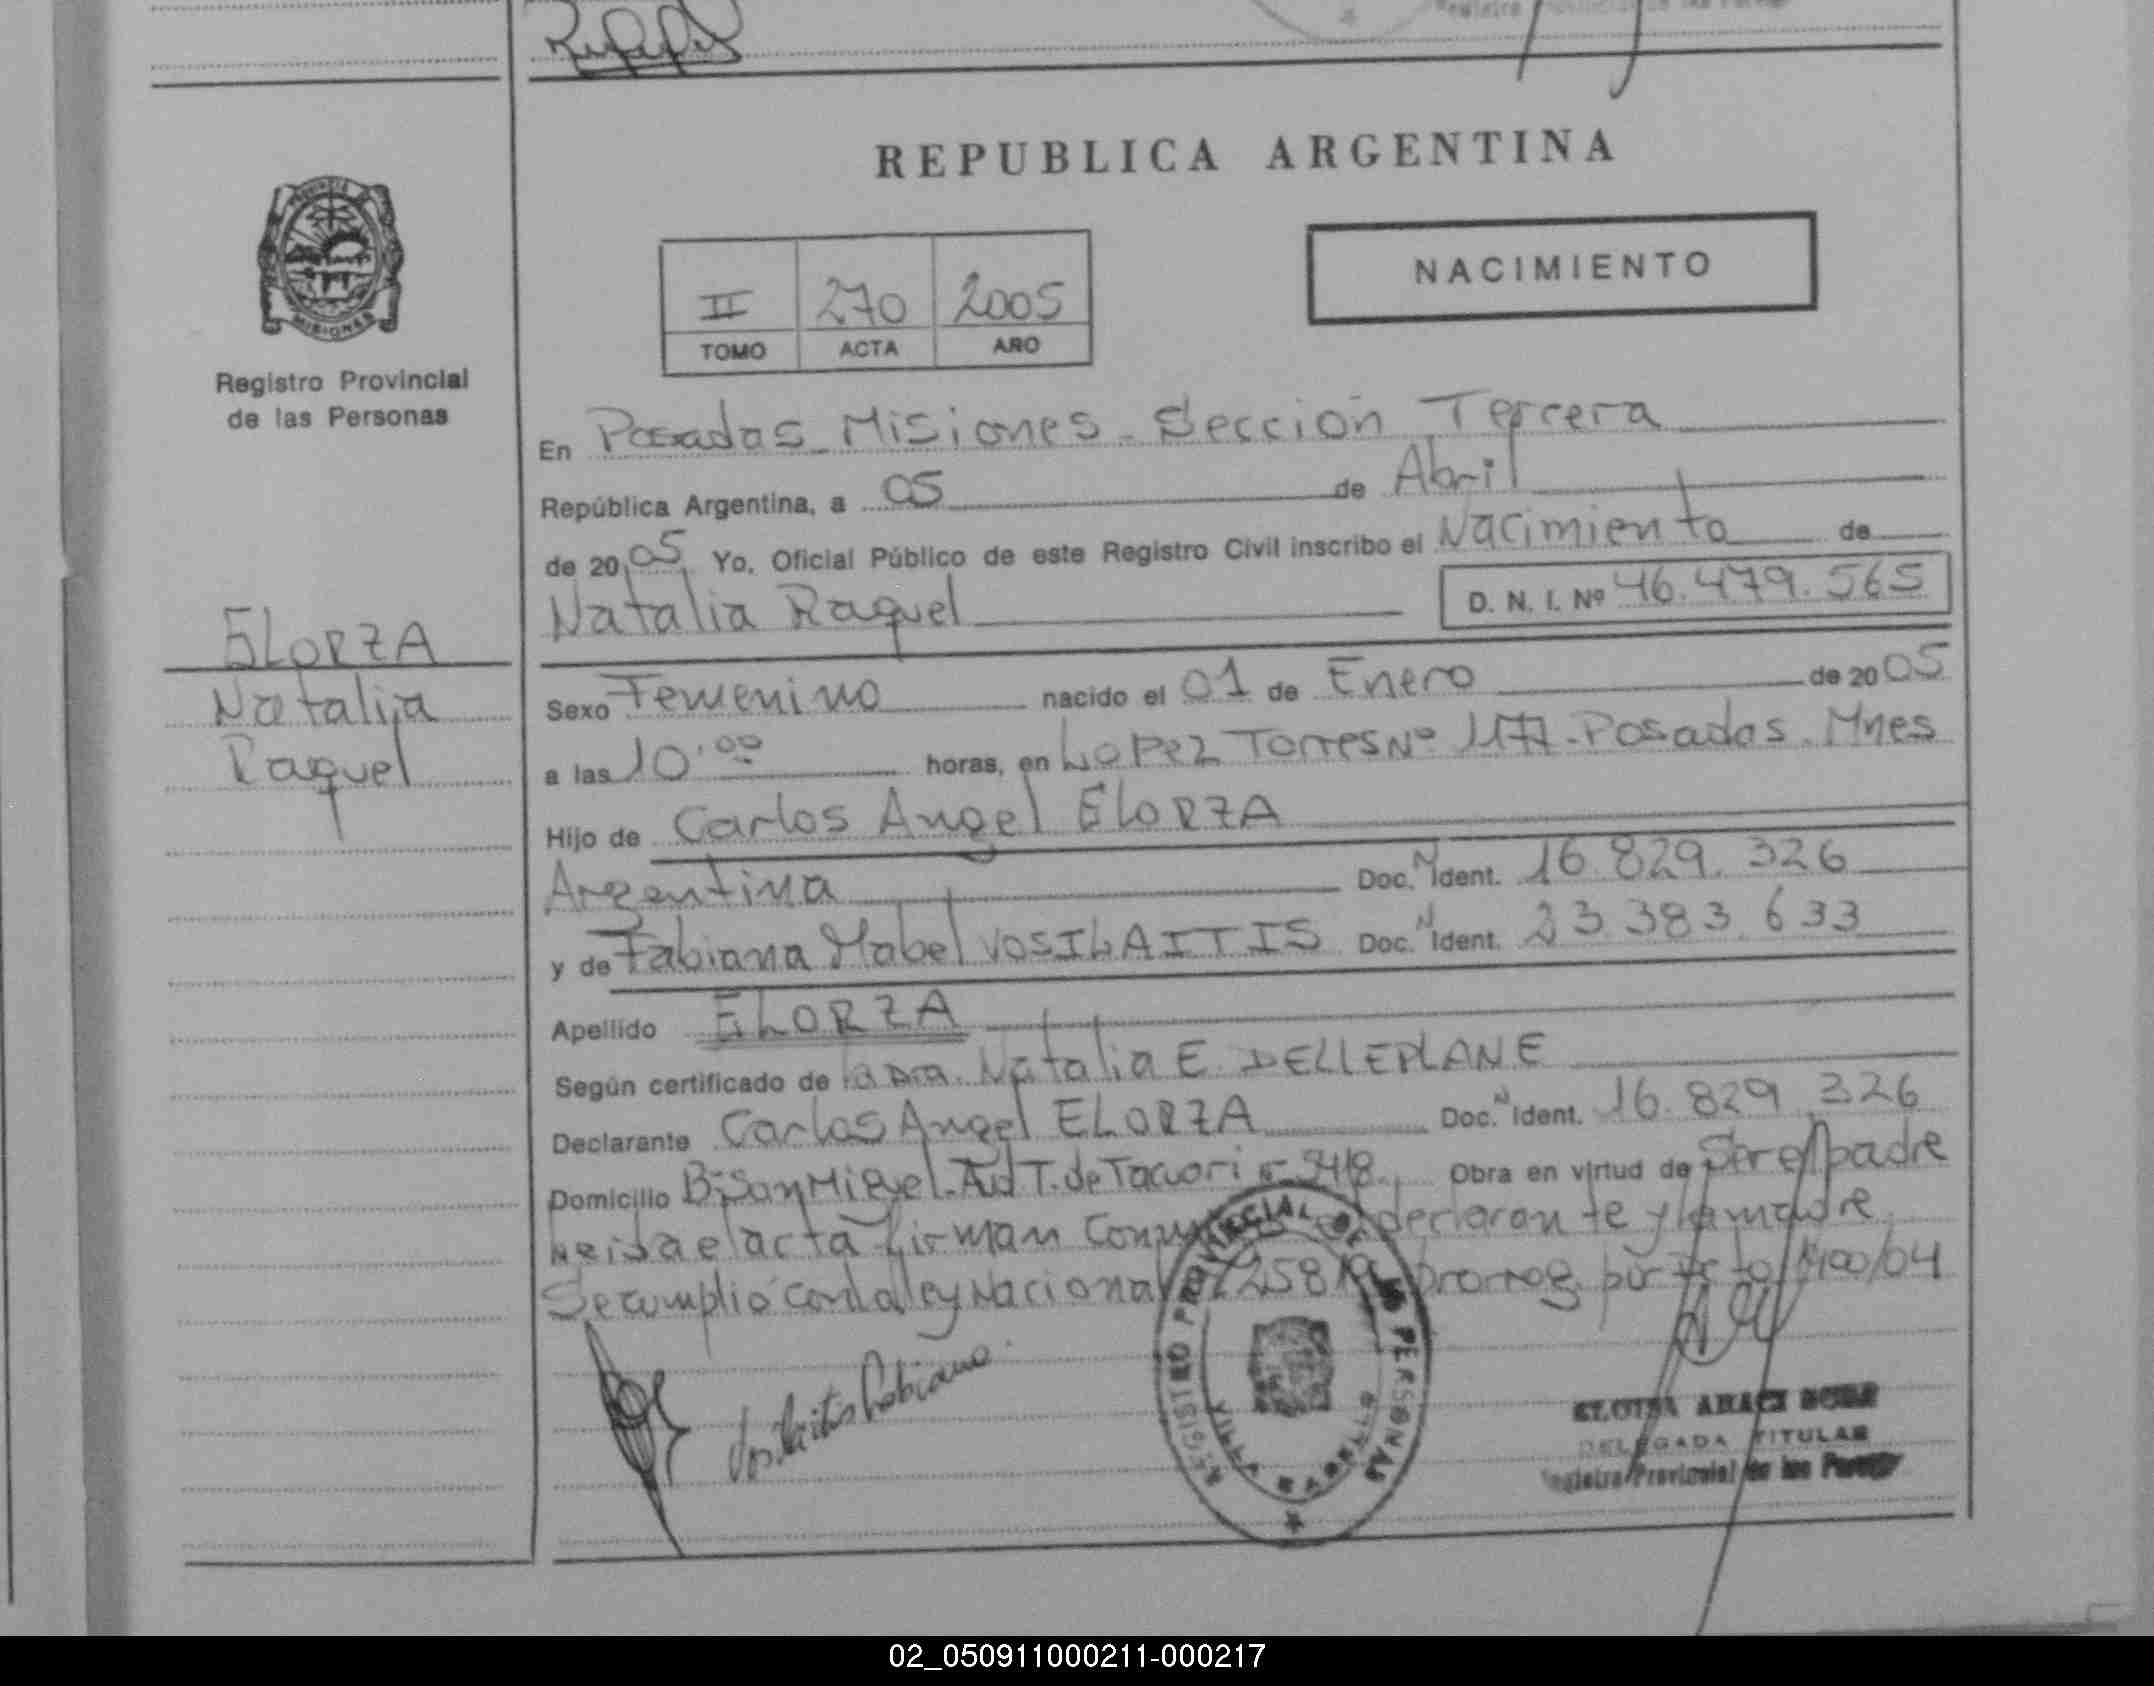 REPUBLICA ARGENTINA
MISIONES
Registro Provincial
de las Personas
II 270 2005
TOMO ACTA AÑO
NACIMIENTO
En Posadas Misiones - Sección Tercera
República Argentina, a 05 de Abril
de 2005 Yo, Oficial Público de este Registro Civil inscribo el Nacimiento de
Natalia Raquel D. N. I. Nº 46.479.565
ELORZA
Natalia
Raquel
Sexo Femenino nacido el 01 de Enero de 2005
a las 10:00 horas, en Lopez Torres Nº 1177 - Posadas. Mnes
Hijo de Carlos Angel ELORZA
Argentina Doc. N Ident. 16.829.326
y de Fabiana Mabel VOSILAITIS Doc. N Ident. 23.383.633
Apellido ELORZA
Según certificado de la Dra. Natalia E. DELLEPLANE
Declarante Carlos Angel ELORZA Doc. N Ident. 16.829.326
Domicilio Bº San Miguel - Av T. de Tacuari 5418 Obra en virtud de Ser el padre
acta firman declarante y la madre
Se cumplió con la ley Nacional prorrog. por 1400/04
Vosilaitis Fabiana
REGISTRO PROVINCIAL DE LAS PERSONAS
DELEGADA TITULAR
Registro Provincial de las
02_050911000211-000217